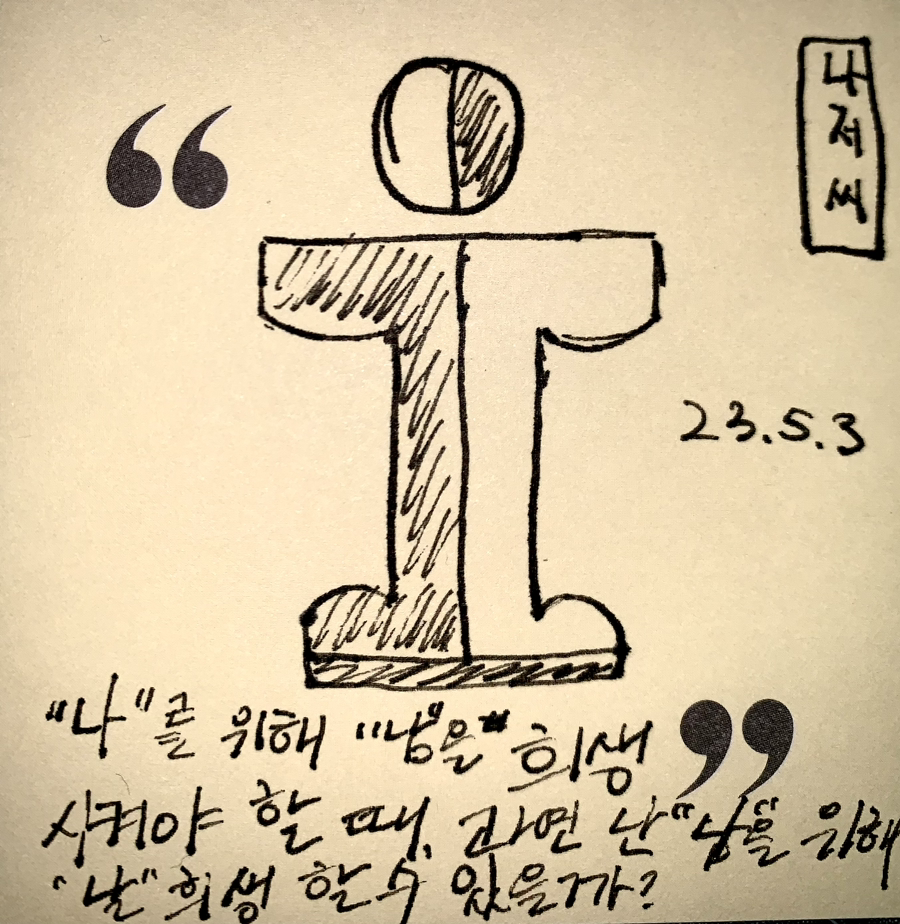 나
저
씨
23.5.3
"나"를 위해 "남"을" 희생
시켜야 할 때, 과연 난 "남"을 위해
"날" 희생 할 수 있을까?